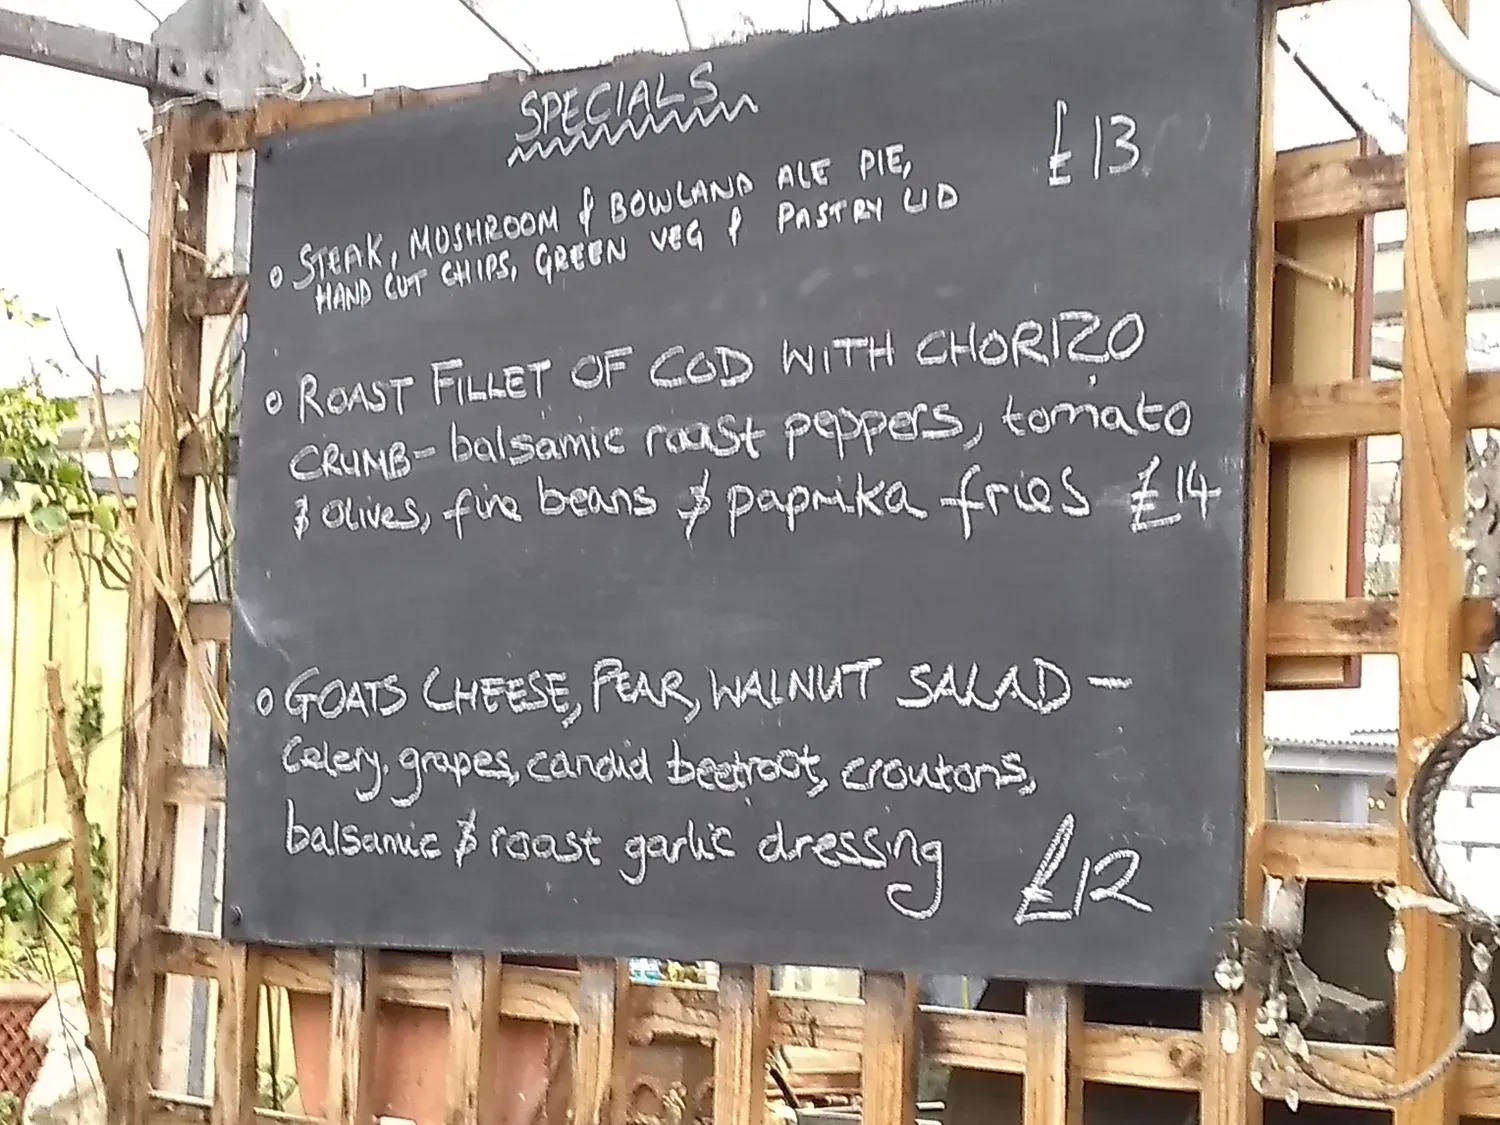 SPECIALS
STEAK, MUSHROOM & BOWLAND ALE PIE, £13
HAND CUT CHIPS, GREEN VEG & PASTRY LID
ROAST FILLET OF COD WITH CHORIZO
CRUMB - balsamic roast peppers, tomato
& olives, fine beans & paprika fries £14
GOATS CHEESE, PEAR, WALNUT SALAD -
Celery, grapes, candid beetroot, croutons,
balsamic & roast garlic dressing £12